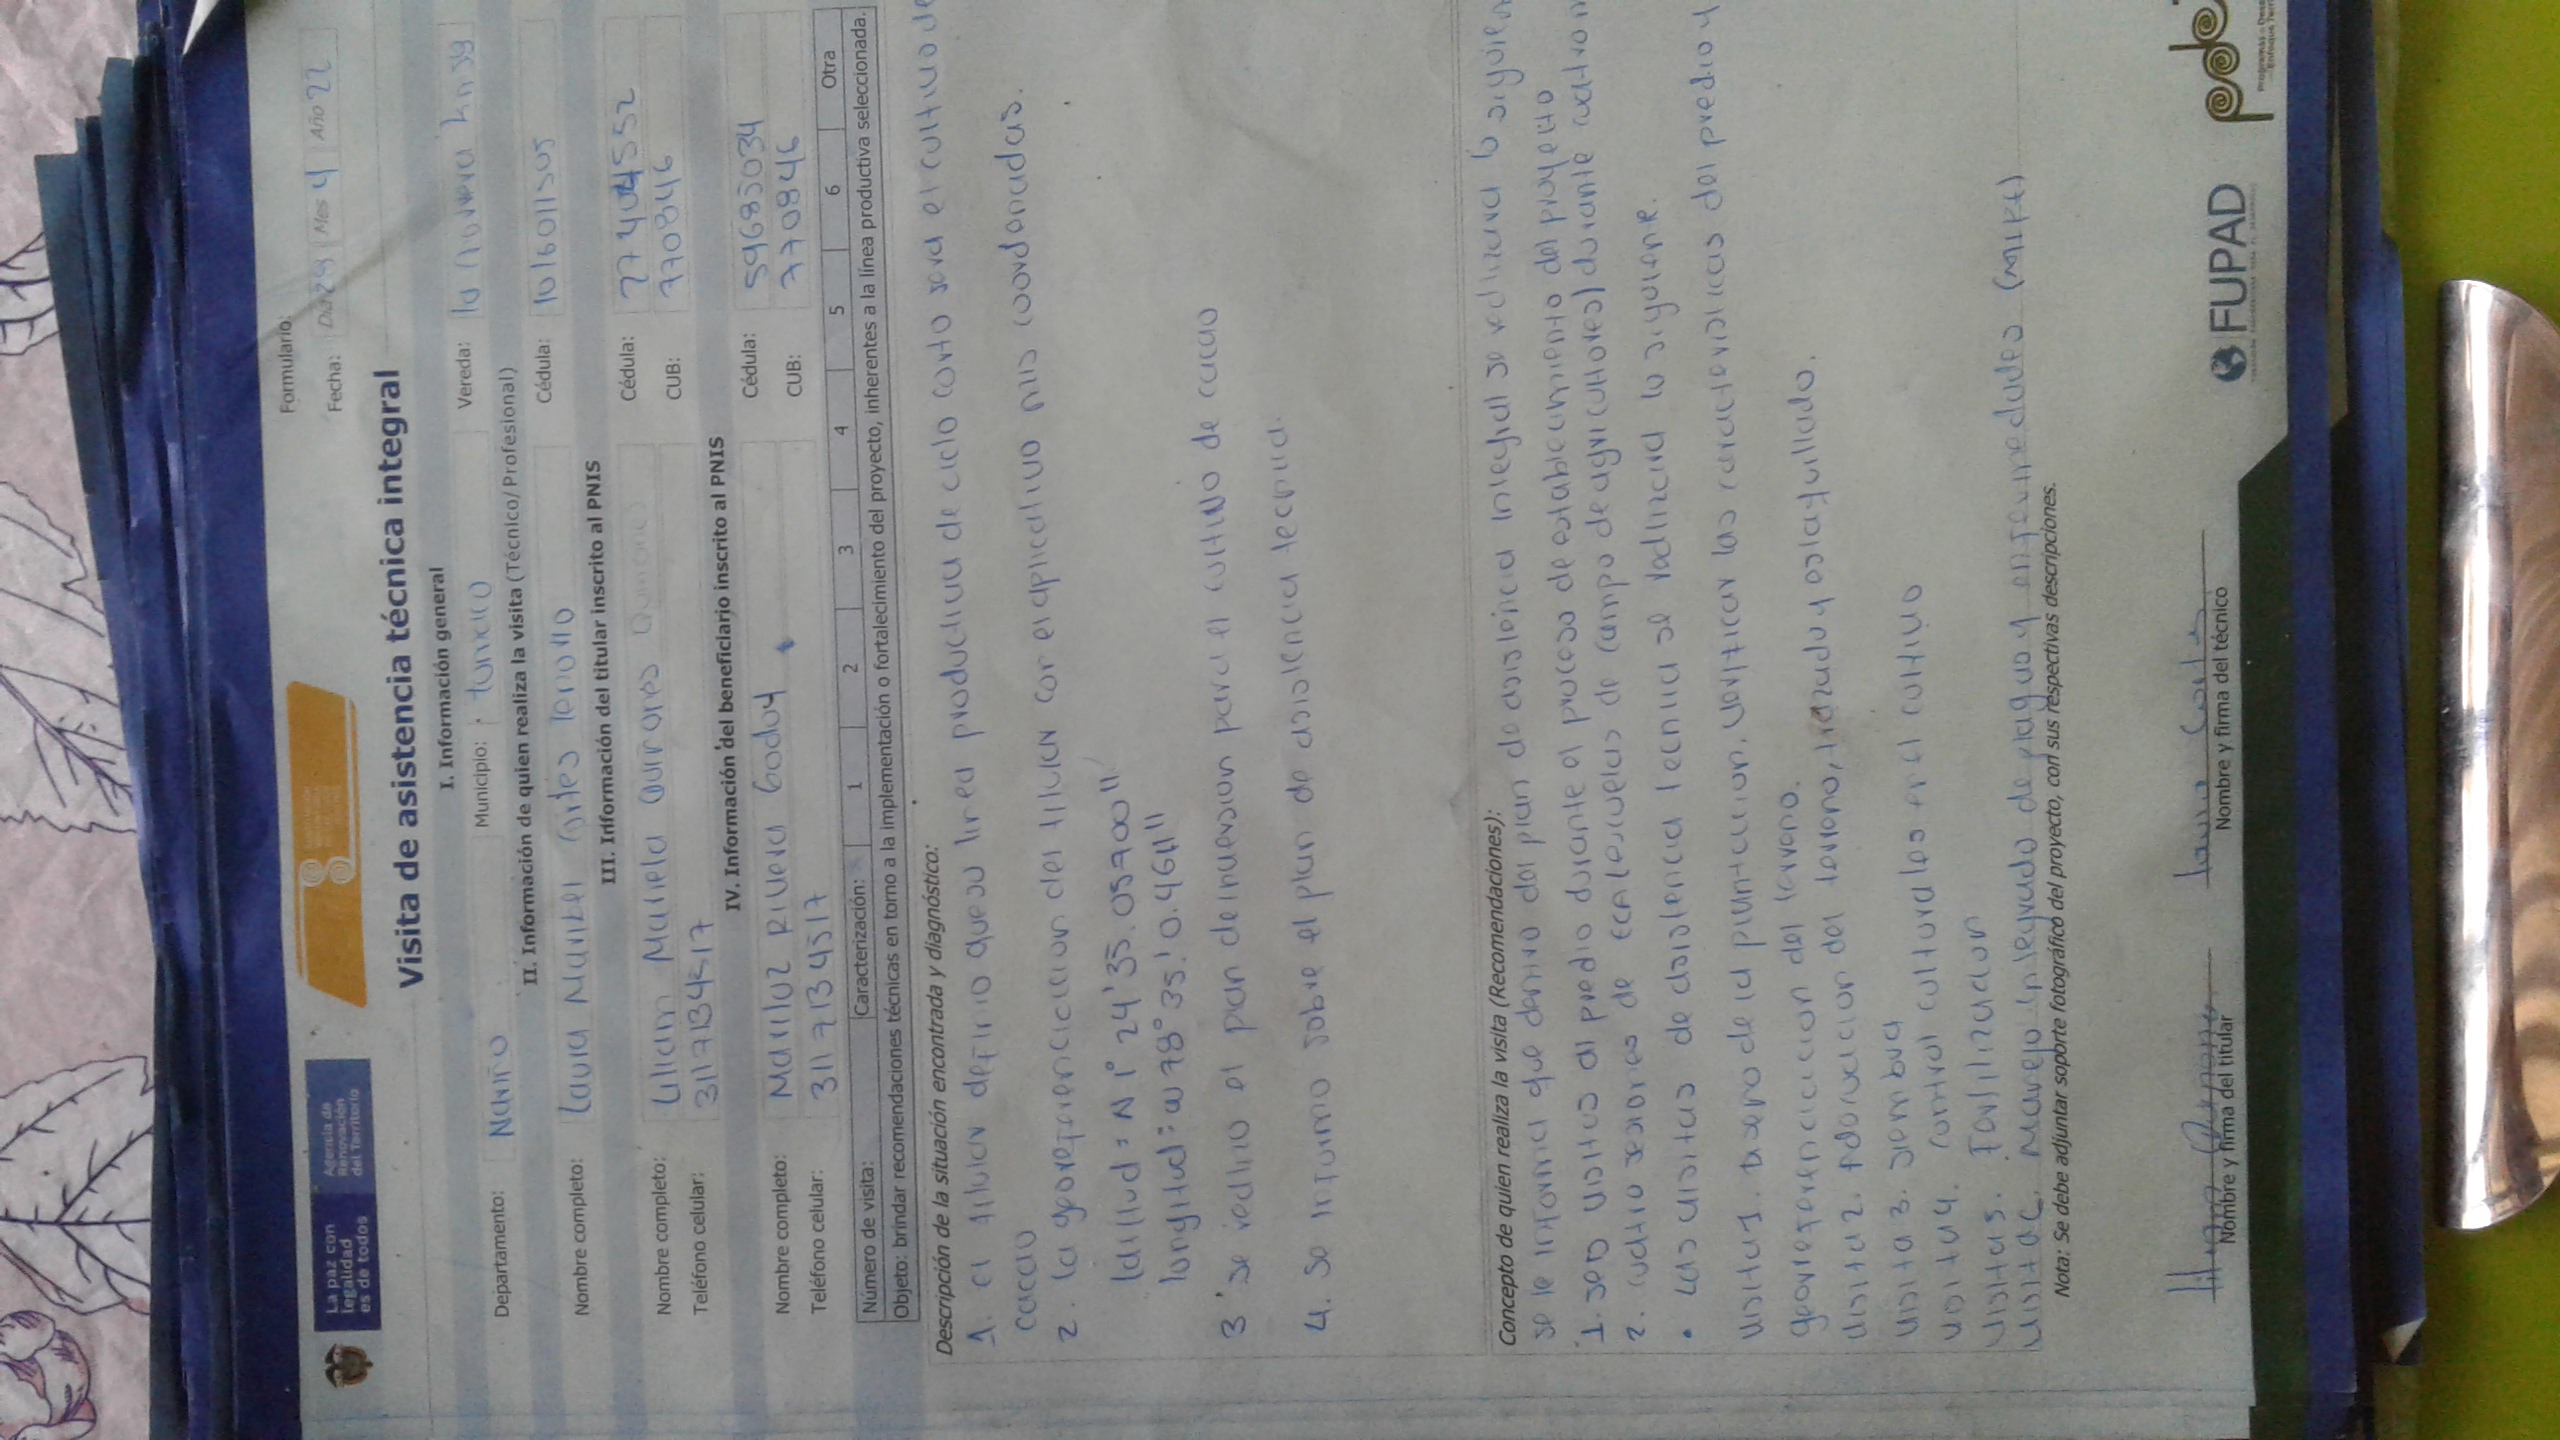 La paz con legalidad es de todos
Agencia de Renovación del Territorio
Formulario:
Fecha: Día 29 Mes 4 Año 22
Visita de asistencia técnica integral
I. Información general
Departamento: Nariño Municipio: tumaco Vereda: la nueva
II. Información de quien realiza la visita (Técnico/Profesional)
Nombre completo: Cédula:
III. Información del titular inscrito al PNIS
Nombre completo: Cédula:
Teléfono celular: 3117134517 CUB: 770846
IV. Información del beneficiario inscrito al PNIS
Nombre completo: Mariluz Rivera Godoy Cédula: 59683034
Teléfono celular: 3117134517 CUB: 770846
Número de visita: Caracterización: 1 2 3 4 5 6 Otra
Objeto: brindar recomendaciones técnicas en torno a la implementación o fortalecimiento del proyecto, inherentes a la línea productiva seleccionada.
Descripción de la situación encontrada y diagnóstico:
1. el titular definio que su linea productiva de ciclo corto sera el cultivo de
cacao
2. la georeferenciacion del titular con el aplicativo mis coordenadas.
latitud = N 1° 24' 35.05700"
longitud = W 78° 35' 0.4611"
3 se realizo el plan de inversion para el cultivo de cacao
4. se informo sobre el plan de asistencia tecnica.
Concepto de quien realiza la visita (Recomendaciones):
se le informa que dentro del plan de asistencia integral se realizara lo
1. seis visitas al predio durante el proceso de establecimiento del proyecto
2. cuatro sesiones de escuelas de campo de agricultores) durante
• Las visitas de asistencia tecnica se realizara lo siguiente.
visita 1. Diseño de la plantacion, verificar las caracteristicas del predio y
georeferenciacion del terreno.
visita 2. Adecuacion del terreno, trazado y estaquillado.
visita 3. siembra
visita 4. control culturales en el cultivo
visita 5. Fertilizacion
visita 6. Manejo integrado de plagas y enfermedades (MIPE)
Nota: Se debe adjuntar soporte fotográfico del proyecto, con sus respectivas descripciones.
Nombre y firma del titular Nombre y firma del técnico
FUPAD